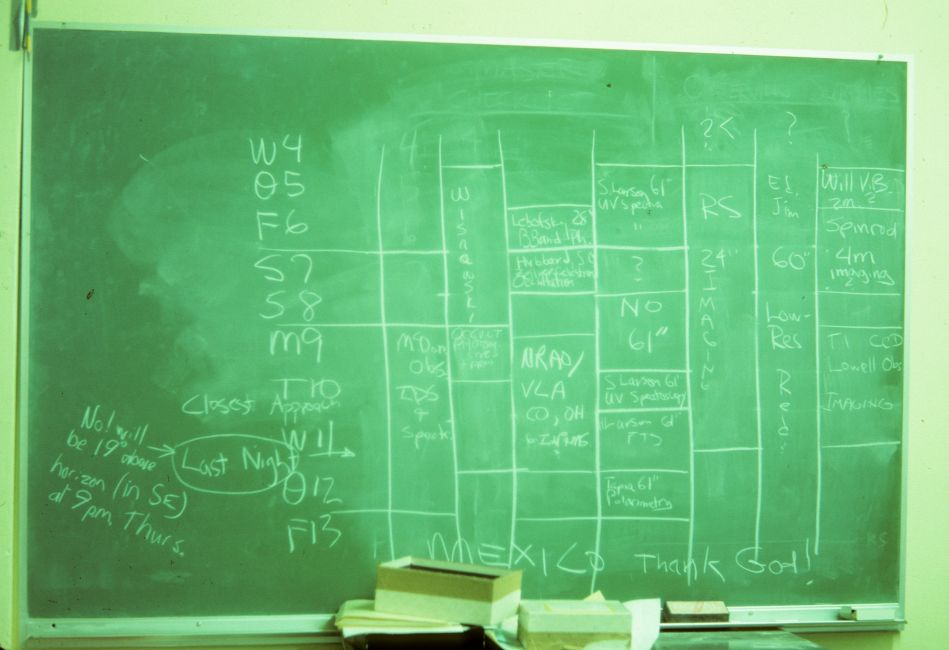 ?<
?
W4
Θ5
F6
S7
S8
M9
T10
Closest Approach
W11
Θ12
F13
No! will
be 19° above
horizon (in SE)
at 9pm, Thurs.
Last Night
McDon.
Obs.
IDS
&
Spect.
Wisniewski
OCCULT
Lebofsky 28"
BBand Ph.
Hubbard
Occultation
NRAO/
VLA
CO, OH
S. Larson 61"
UV Spectra
"
?
NO
61"
S Larson 61"
UV Spectroscopy
Larson 61"
FTS
61"
Polarimetry
RS
24"
IMAGING
Jim
60"
Low-
Res
Will V.B.
2m.?
Spinrad
4m
imaging
?
TI CCD
Lowell Obs
IMAGING
MEXICO Thank God!
RS